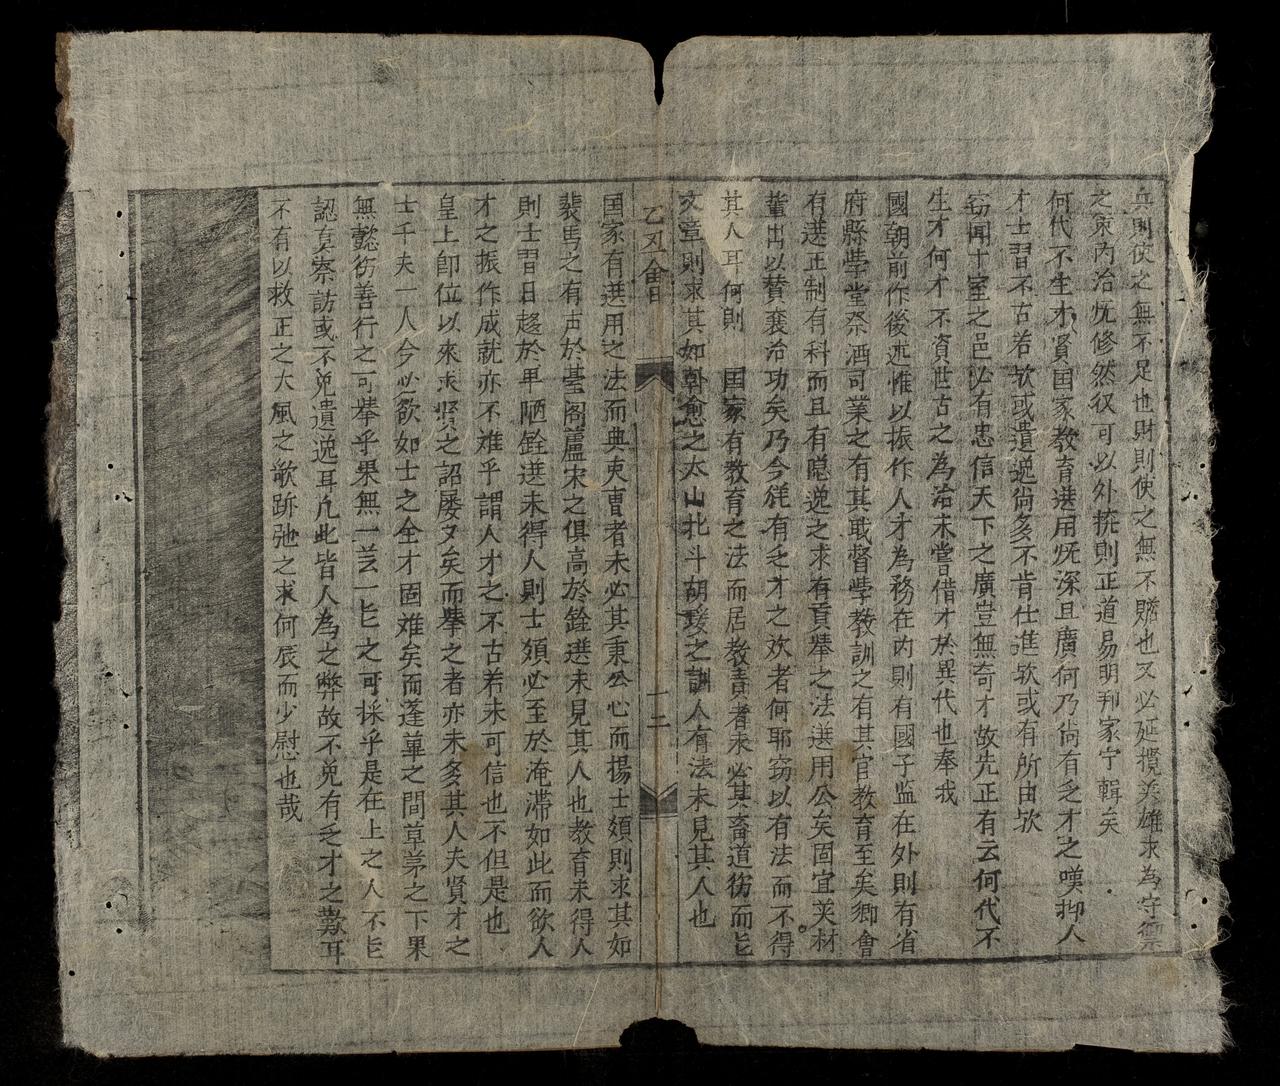 兵則使之無不足也財則使之無不贍也又必延攬英雄求為守禦
之東內治既修然後可以外攘則正道易明判家宁輯矣
何代不生才賢国家教育選用既深且廣何乃尚有乏才之嘆抑人
才士習不古若欤或遺逸尚多不肯仕進欤或有所由欤
窃聞十室之邑必有忠信天下之廣豈無奇才故先正有云何代不
生才何才不資世古之為治未嘗借才於異代也奉我
國朝前作後述惟以振作人才為務在內則有國子监在外則有省
府縣學堂祭酒司業之有其職督學教訓之有其官教育至矣鄉會
有選正制有科而且有隠逸之求有貢舉之法選用公矣固宜英材
輩出以賛襄治功矣乃今徃有乏才之欢者何耶窃以有法而不得
其人耳何則 国家有教育之法而居教責者未必其畜道徳而能
文章則求其如韓愈之太山北斗胡瑗之訓人有法未見其人也
乙丑會 十二
国家有選用之法而典吏曹者未必其秉公心而揚士類則求其如
裴馬之有声於臺阁蘆宋之俱高於銓選未見其人也教育未得人
則士習日趍於卑陋銓選未得人則士類必至於淹滞如此而欲人
才之振作成就亦不难乎謂人才之不古若未可信也不但是也
皇上即位以來求贤之詔屡又矣而舉之者亦未多其人夫賢才之
士千夫一人今必欲如士之全才固难矣而蓬蓽之間草茅之下果
無懿徳善行之可舉乎果無一芸一能之可採乎是在上之人不能
認真察訪或不免遺逸耳凢此皆人為之弊故不免有乏才之歎耳
不有以救正之大風之歌跡弛之求何辰而少慰也哉